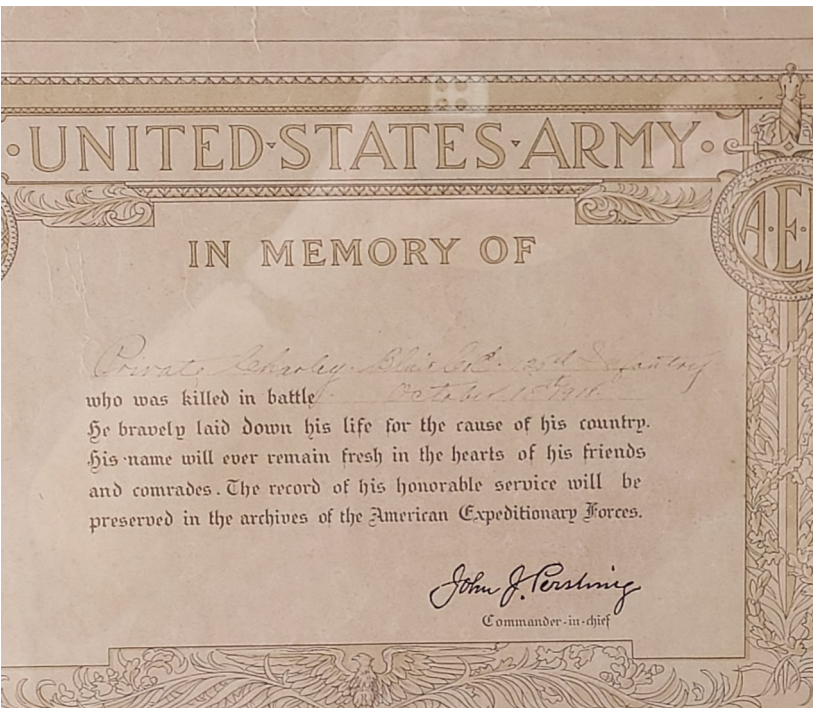 ·UNITED·STATES·ARMY·
A·E
IN MEMORY OF
Private Charley Blair Co. Infantry
who was killed in battle October 1918.
He bravely laid down his life for the cause of his country.
His name will ever remain fresh in the hearts of his friends
and comrades. The record of his honorable service will be
preserved in the archives of the American Expeditionary Forces.
John J. Pershing
Commander-in-chief